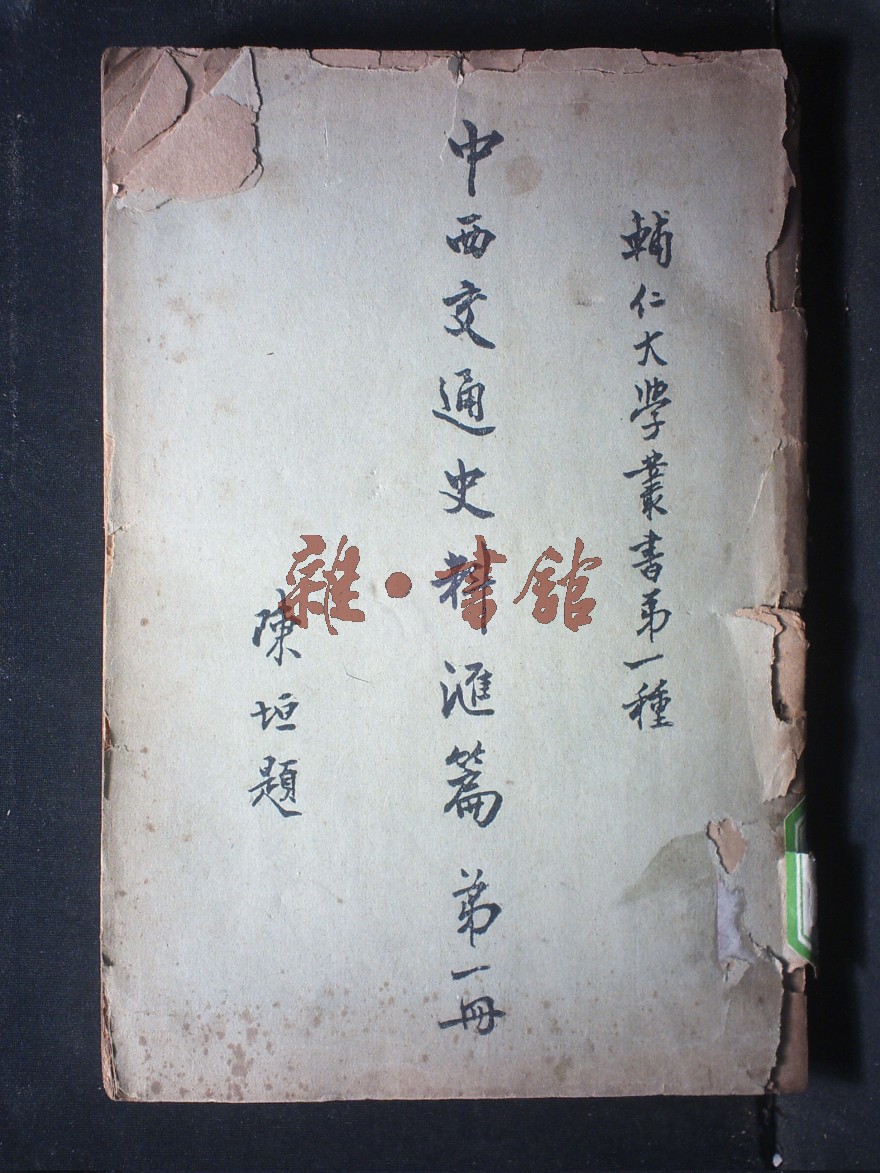 輔仁大學叢書弟一種
中西交通史料匯篇 弟一冊
陳垣題
雜·書館